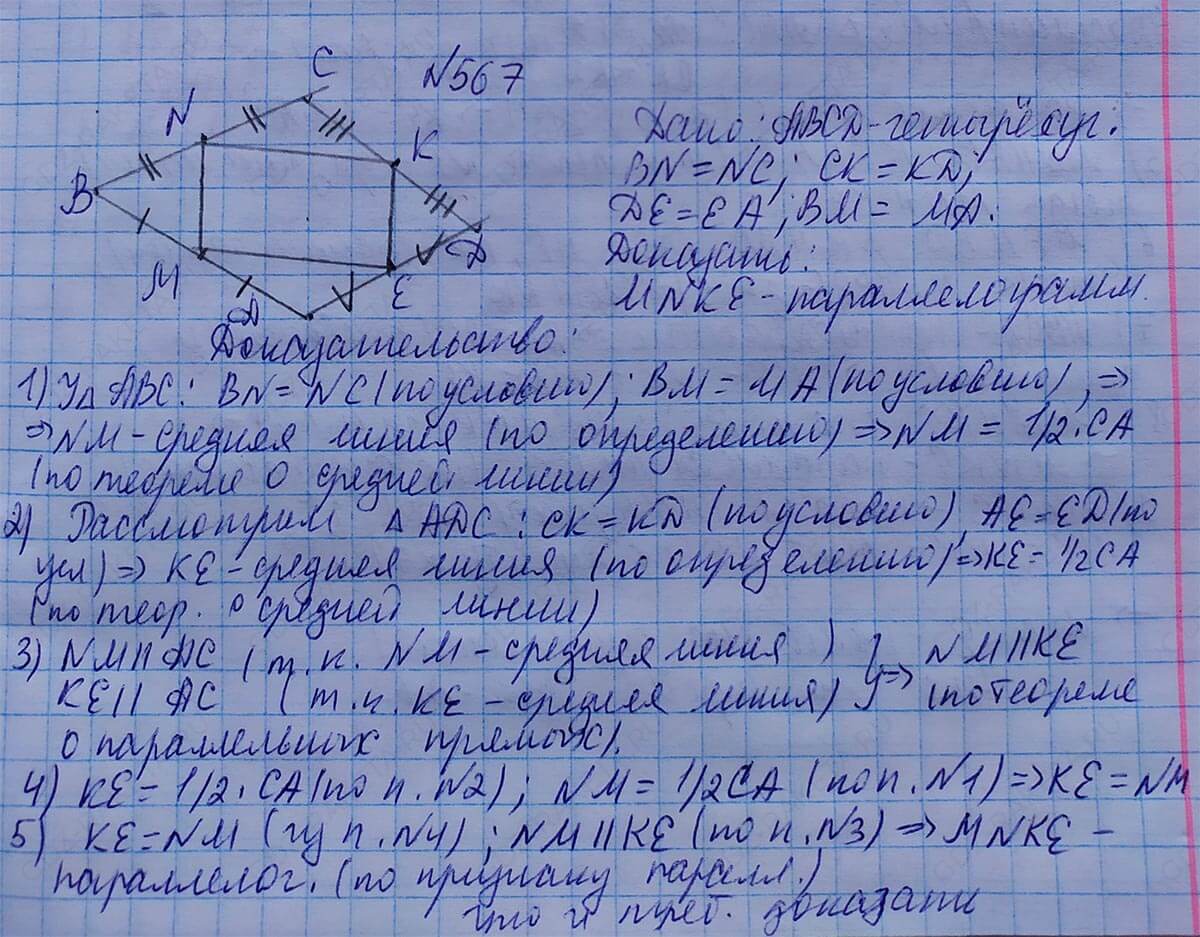 N567
C
N
K
B
M
E
D
A
Дано: ABCD-четырёхуг.
BN = NC; CK = KD;
DE = EA; BM = MA.
Доказать:
MNKE - параллелограмм.
Доказательство:
1) У△ ABC: BN = NC (по условию); BM = MA (по условию), =>
=> NM - средняя линия (по определению) => NM = 1/2 · CA
(по теореме о средней линии)
2) Рассмотрим △ ADC: CK = KD (по условию) AE = ED (по
усл) => KE - средняя линия (по определению) => KE = 1/2 CA
(по теор. о средней линии)
3) NM || AC (т.к. NM - средняя линия ) } NM || KE
KE || AC (т.к. KE - средняя линия) } => (по теореме
о параллельных прямых).
4) KE = 1/2 · CA (по п. N2); NM = 1/2 CA (по п. N1) => KE = NM
5) KE = NM (из п. N4); NM || KE (по п. N3) => MNKE -
параллелог. (по признаку паралл.)
что и треб. доказать